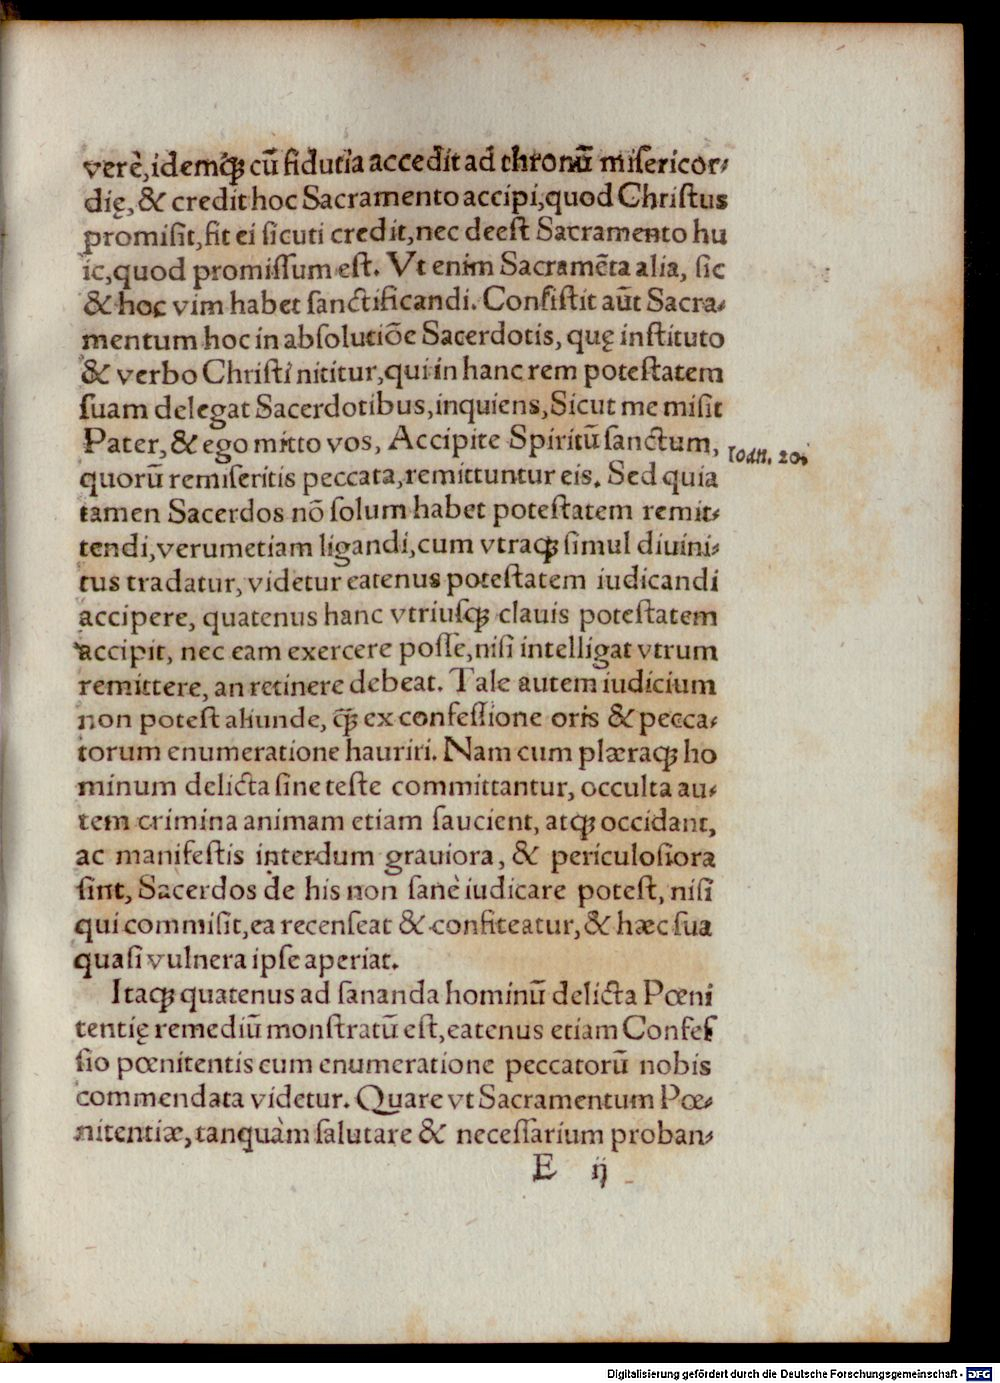 verè, idemq́; cū fidutia accedit ad thronū misericor-
dię, & credit hoc Sacramento accipi, quod Christus
promisit, fit ei sicuti credit, nec deest Sacramento hu
ic, quod promissum est. Vt enim Sacramēta alia, sic
& hoc vim habet sanctificandi. Consistit aūt Sacra-
mentum hoc in absolutiōe Sacerdotis, quę instituto
& verbo Christi nititur, qui in hanc rem potestatem
suam delegat Sacerdotibus, inquiens, Sicut me misit
Pater, & ego mitto vos, Accipite Spiritū sanctum,
Ioan. 20.
quorū remiseritis peccata, remittuntur eis. Sed quia
tamen Sacerdos nō solum habet potestatem remit-
tendi, verumetiam ligandi, cum vtraq; simul diuini-
tus tradatur, videtur eatenus potestatem iudicandi
accipere, quatenus hanc vtriusq; clauis potestatem
accipit, nec eam exercere posse, nisi intelligat vtrum
remittere, an retinere debeat. Tale autem iudicium
non potest aliunde, q̄; ex confessione oris & pecca-
torum enumeratione hauriri. Nam cum plæraq; ho
minum delicta sine teste committantur, occulta au-
tem crimina animam etiam saucient, atq; occidant,
ac manifestis interdum grauiora, & periculosiora
sint, Sacerdos de his non sanè iudicare potest, nisi
qui commisit, ea recenseat & confiteatur, & hæc sua
quasi vulnera ipse aperiat.
Itaq; quatenus ad sananda hominū delicta Pœni
tentię remediū monstratū est, eatenus etiam Confes
sio pœnitentis cum enumeratione peccatorū nobis
commendata videtur. Quare vt Sacramentum Pœ-
nitentiæ, tanquàm salutare & necessarium proban-
E ij
Digitalisierung gefördert durch die Deutsche Forschungsgemeinschaft - DFG